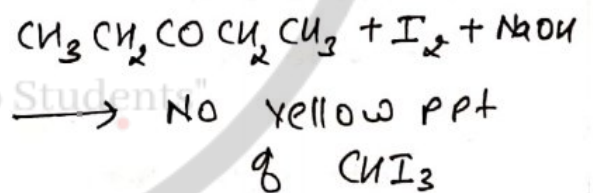 CH₃ CH₂ CO CH₂ CH₃ + I₂ + NaOH
Students"
⟶ No yellow ppt
of CHI₃